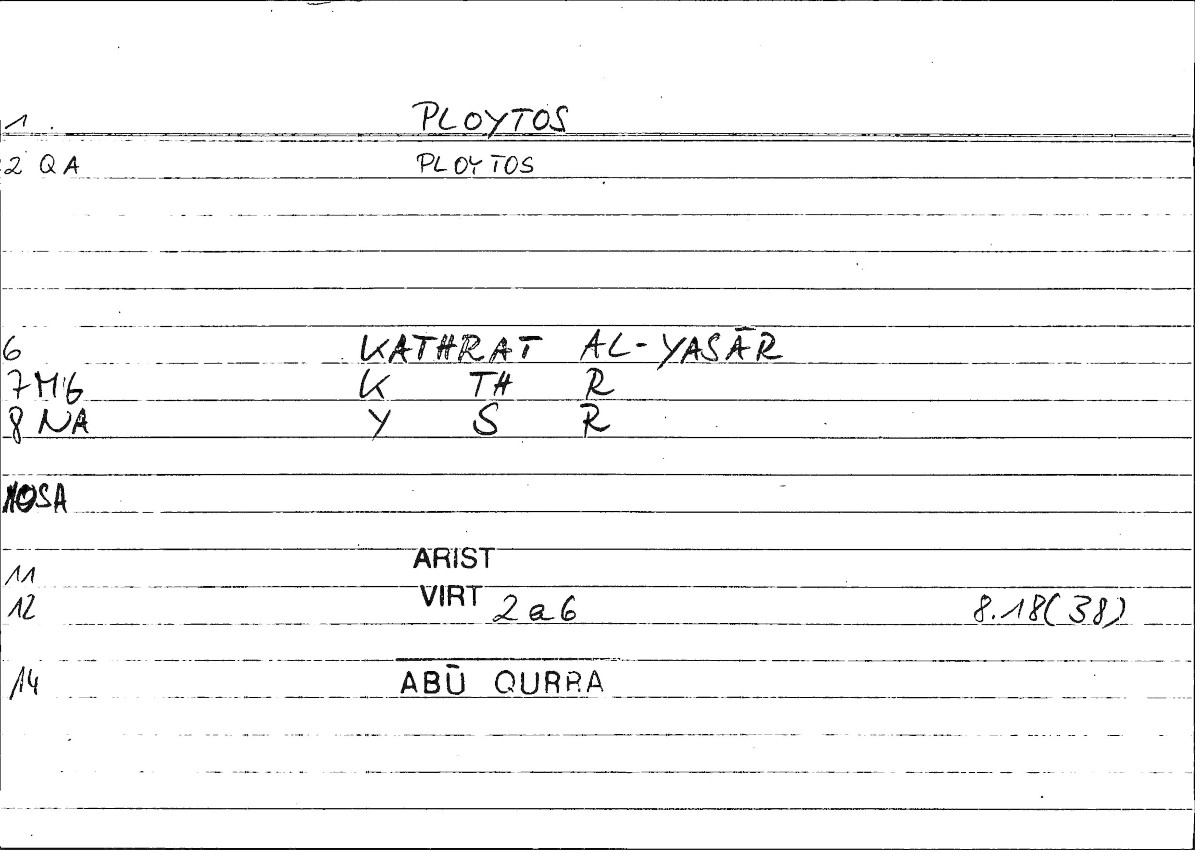 1. PLOYTOS
2 QA PLOYTOS
6 KATHRAT AL-YASĀR
7 M'6 K TH R
8 NA Y S R
10SA
11 ARIST
12 VIRT 2a6 8.18(38)
14 ABŪ QURRA